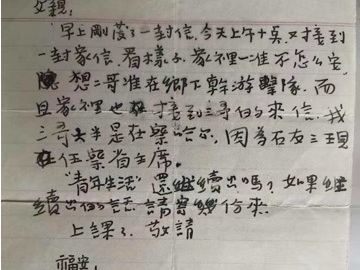 父親：
早上剛發了一封信，今天上午十点，又接到
一封家信。看樣子，家裡一准不怎么安
想二哥准在鄉下幹游擊隊。而
且家裡也接到三哥的來信，我
三哥大半是在察哈尔，因為石友三現
在任察省主席。
"青年生活"還繼續出嗎？如果繼
續出的話，請寄幾份來。
上課了，敬請
福安，